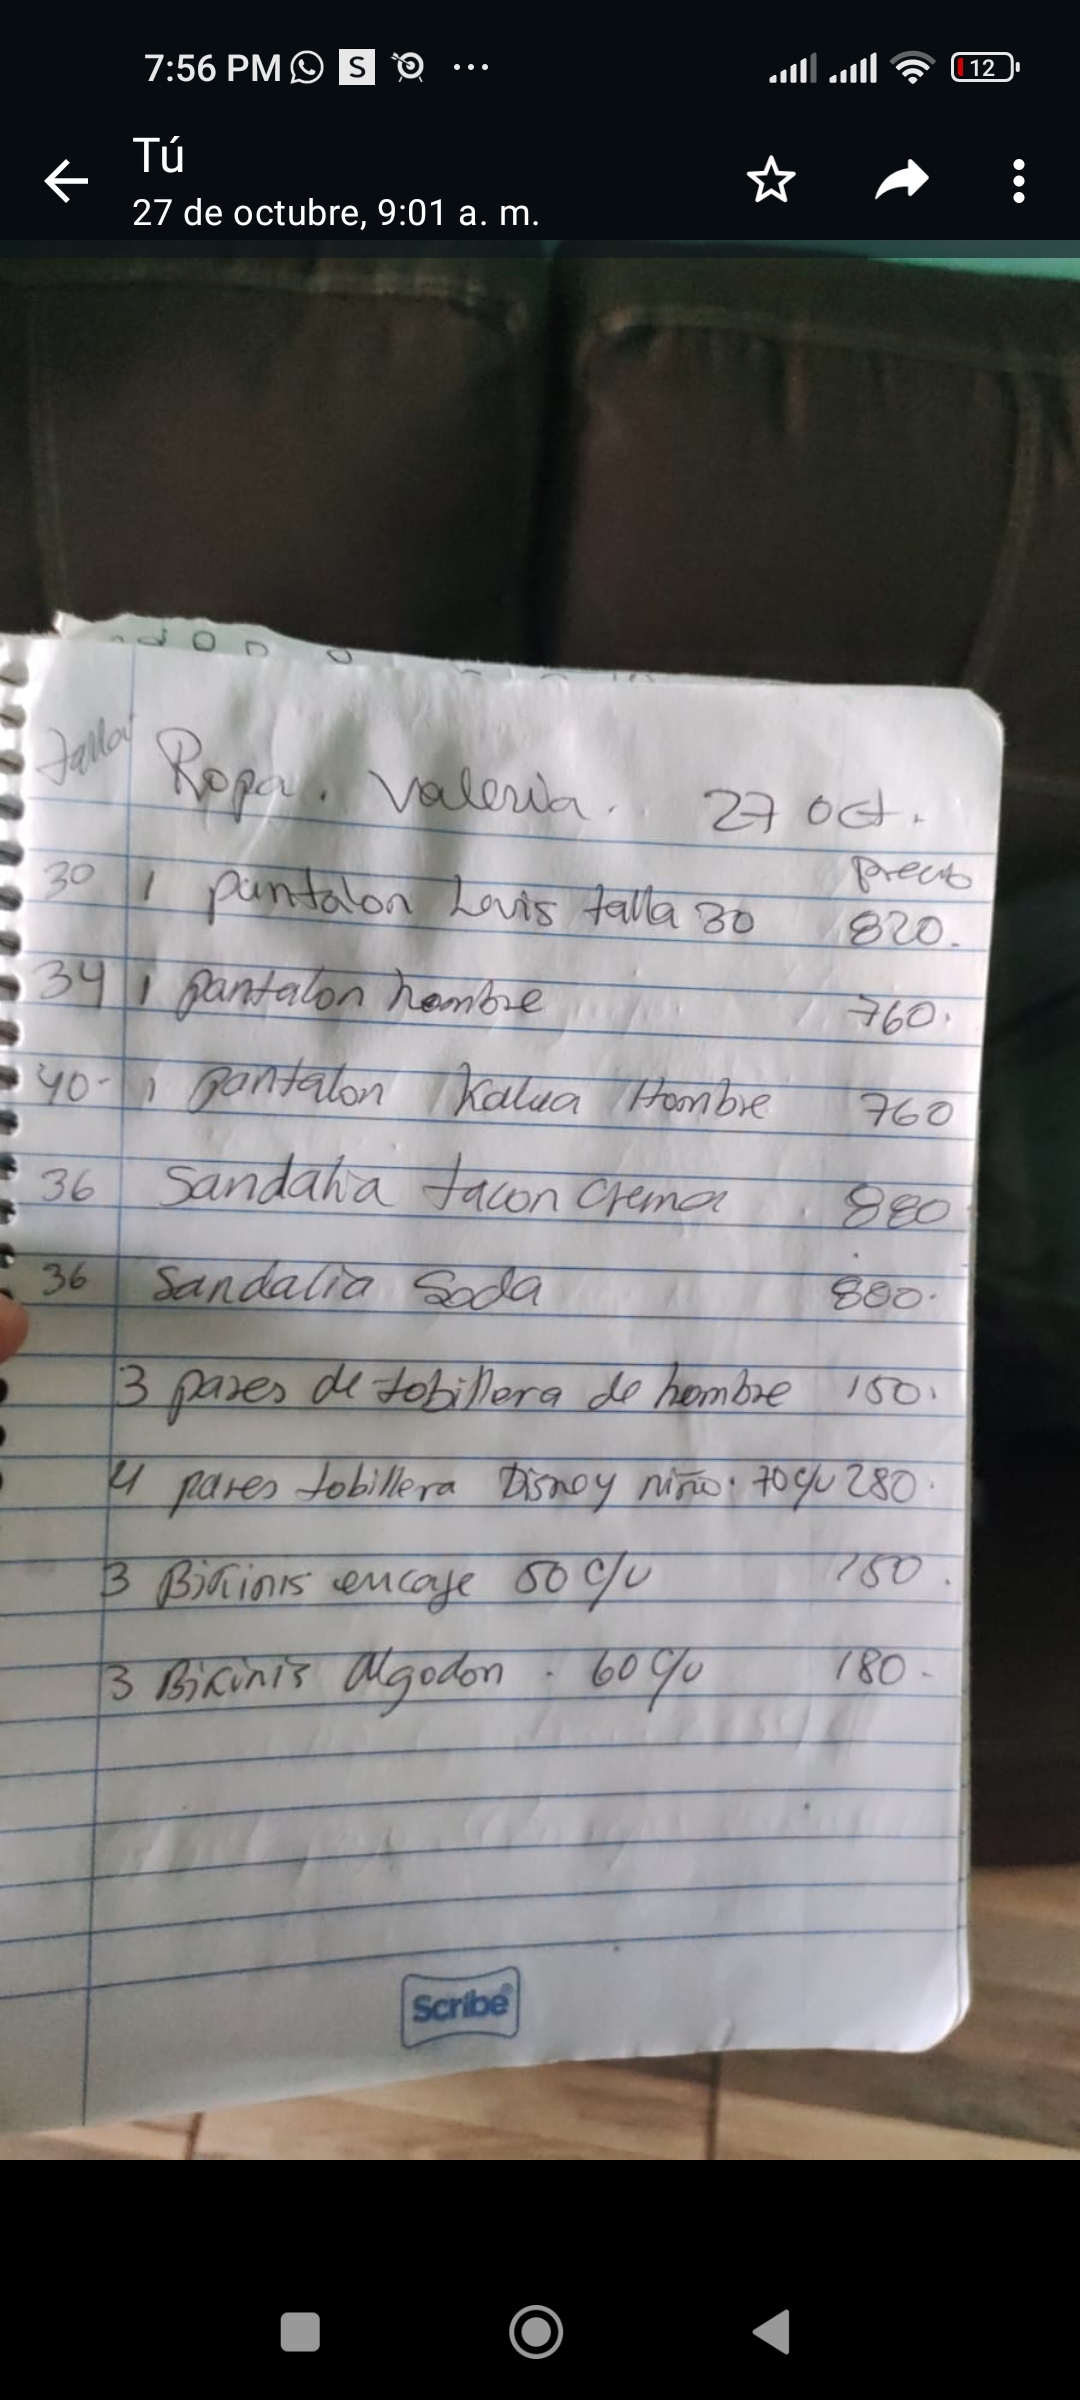 7:56 PM S ... 12
Tú
27 de octubre, 9:01 a. m.
talla Ropa. Valeria. 27 oct.
precio
30 1 pantalon Levis talla 30 820.
34 1 pantalon hombre 760.
40- 1 pantalon Kalua Hombre 760
36 Sandalia tacon crema 880
36 Sandalia Soda 800.
3 pares de tobillera de hombre 150.
4 pares tobillera Disney niño. 70 c/u 280.
3 Bikinis encaje 50 c/u 150.
3 Bikinis Algodon. 60 c/u 180-
Scribe